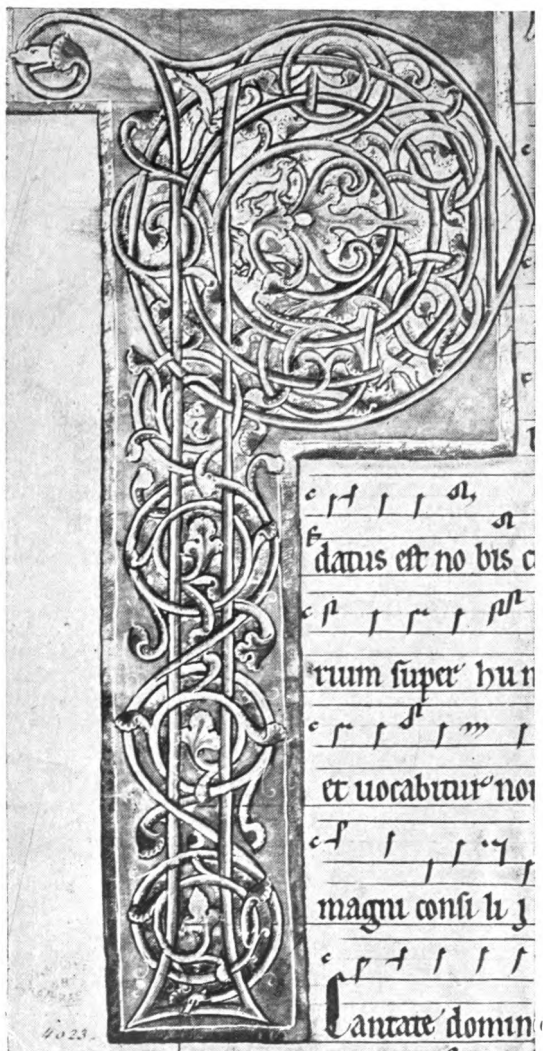 P
datus est no bis
rium super hu
et uocabitur
magni consi li
Cantate domin
4023